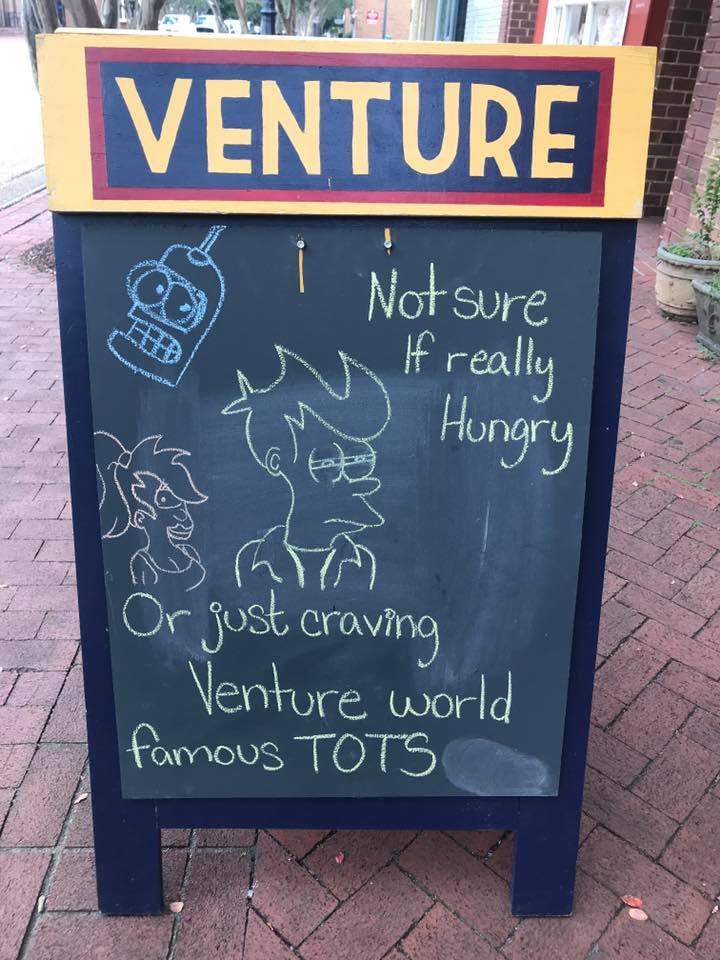 VENTURE
Not sure
If really
Hungry
Or just craving
Venture world
famous TOTS